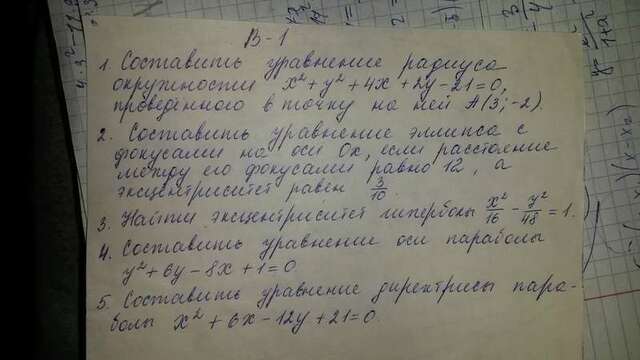 В-1
1. Составить уравнение радиуса
окружности x² + y² + 4x + 2y - 21 = 0,
проведённого в точку на ней A(3; -2).
2. Составить уравнение эллипса с
фокусами на оси Ox, если расстояние
между его фокусами равно 12, а
эксцентриситет равен 3/10.
3. Найти эксцентриситет гиперболы x²/16 - y²/48 = 1.
4. Составить уравнение оси параболы
y² + 6y - 8x + 1 = 0
5. Составить уравнение директрисы пара-
болы x² + 6x - 12y + 21 = 0.